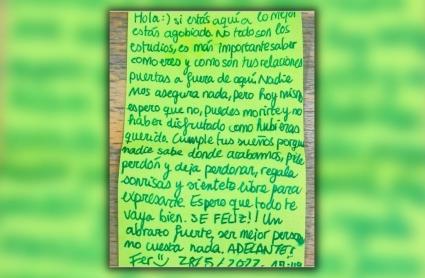 Hola:) si estás aquí a lo mejor
estás agobiado. No todo son los
estudios, es más importante saber
como eres y como son tus relaciones
puertas a fuera de aquí. Nadie
nos asegura nada, pero hoy mismo,
espero que no, puedes morirte y no
haber disfrutado como hubieras
querido. Cumple tus sueños porque
nadie sabe donde acabamos, pide
perdón y deja perdonar, regala
sonrisas y siéntete libre para
expresarte. Espero que todo te
vaya bien. SE FELIZ!! Un
abrazo fuerte, ser mejor person
no cuesta nada. ADELANTE!
Fer 28/5/2022